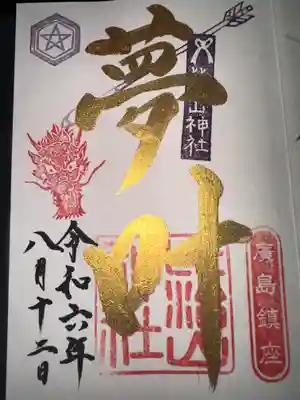 廣島鎮座
山神社
夢叶
令和六年
八月十二日